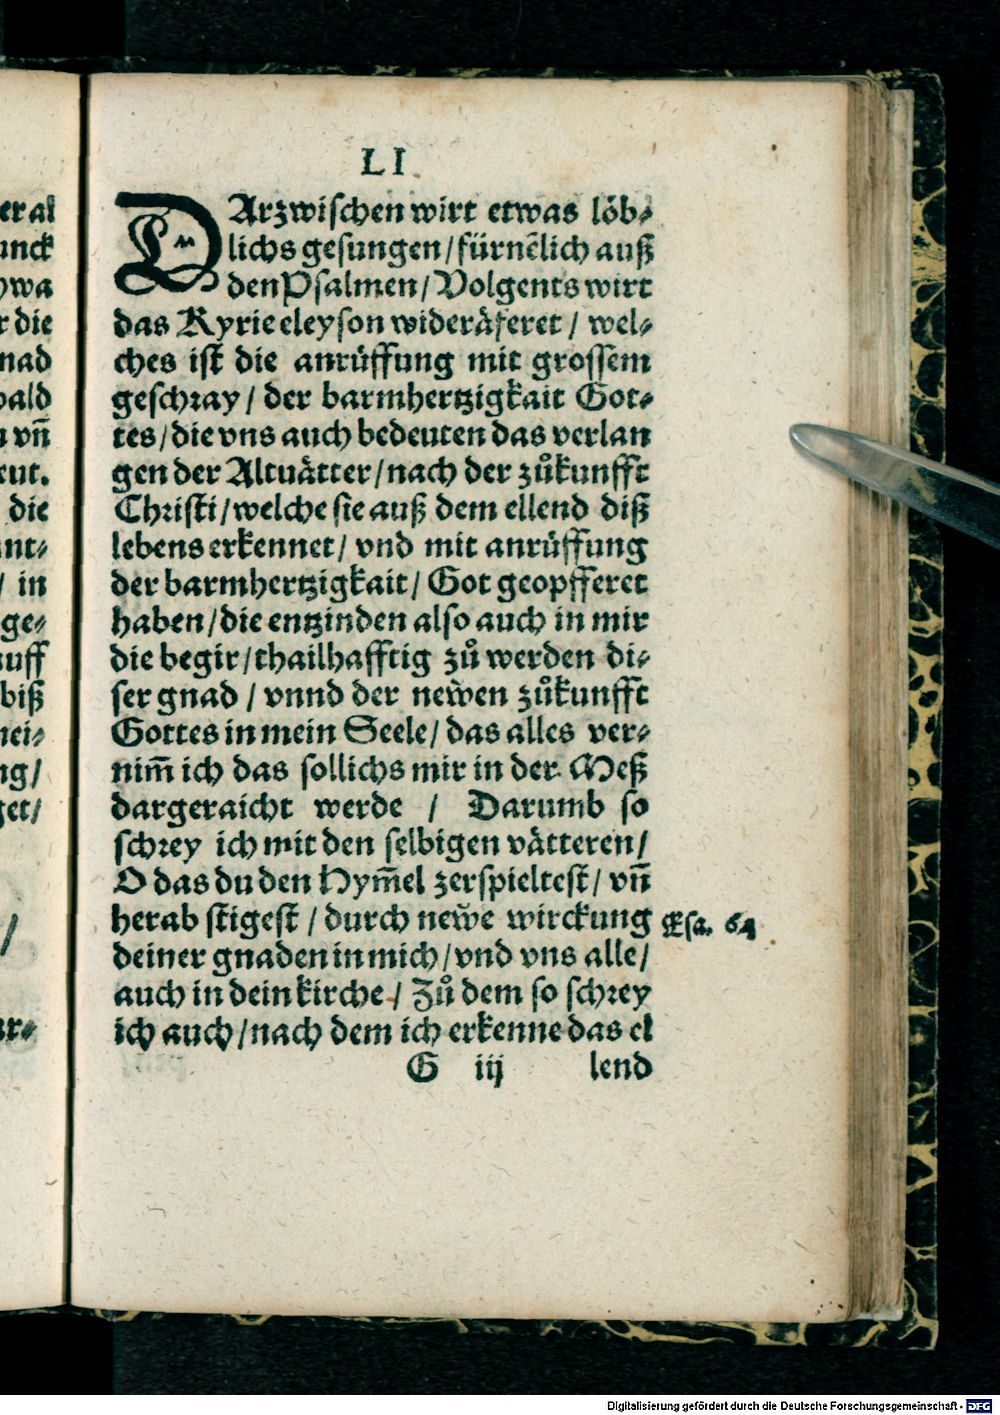 LI
DArzwischen wirt etwas löb⸗
lichs gesungen/fürnẽlich auß
den Psalmen/Volgents wirt
das Kyrie eleyson wideräferet/ wel⸗
ches ist die anrüffung mit grossem
geschray/ der barmhertzigkait Got⸗
tes/die vns auch bedeuten das verlan
gen der Altuätter/nach der zůkunfft
Christi/welche sie auß dem ellend diß
lebens erkennet/ vnd mit anrüffung
der barmhertzigkait/ Got geopfferet
haben/die entzinden also auch in mir
die begir/thailhafftig zů werden di⸗
ser gnad / vnnd der newen zůkunfft
Gottes in mein Seele/ das alles ver⸗
nim̃ ich das sollichs mir in der Meß
dargeraicht werde / Darumb so
schrey ich mit den selbigen vätteren/
O das du den Hym̃el zerspieltest/ vñ
herab stigest / durch newe wirckung
Esa. 64
deiner gnaden in mich/vnd vns alle/
auch in dein kirche/ Zů dem so schrey
ich auch/nach dem ich erkenne das el
G iij lend
er al
unck
die
nad
bald
vñ
die
in
ge⸗
uff
biß
Digitalisierung gefördert durch die Deutsche Forschungsgemeinschaft - DFG